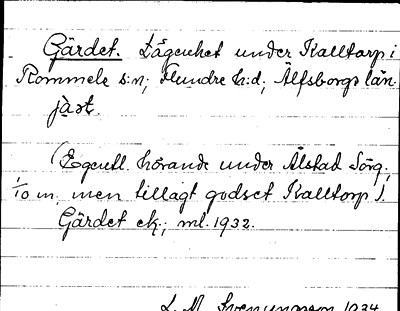 Gärdet. Lägenhet under Kalltorp i
Rommele s:n; Flundre h:d; Älfsborgs län.
jàꞛt.
(Egentl. hörande under Ålstad Sörg.,
1/10 m, men tillagt godset Kalltorp).
Gärdet ek.; ml. 1932.
L. M. Svenungsson 1934